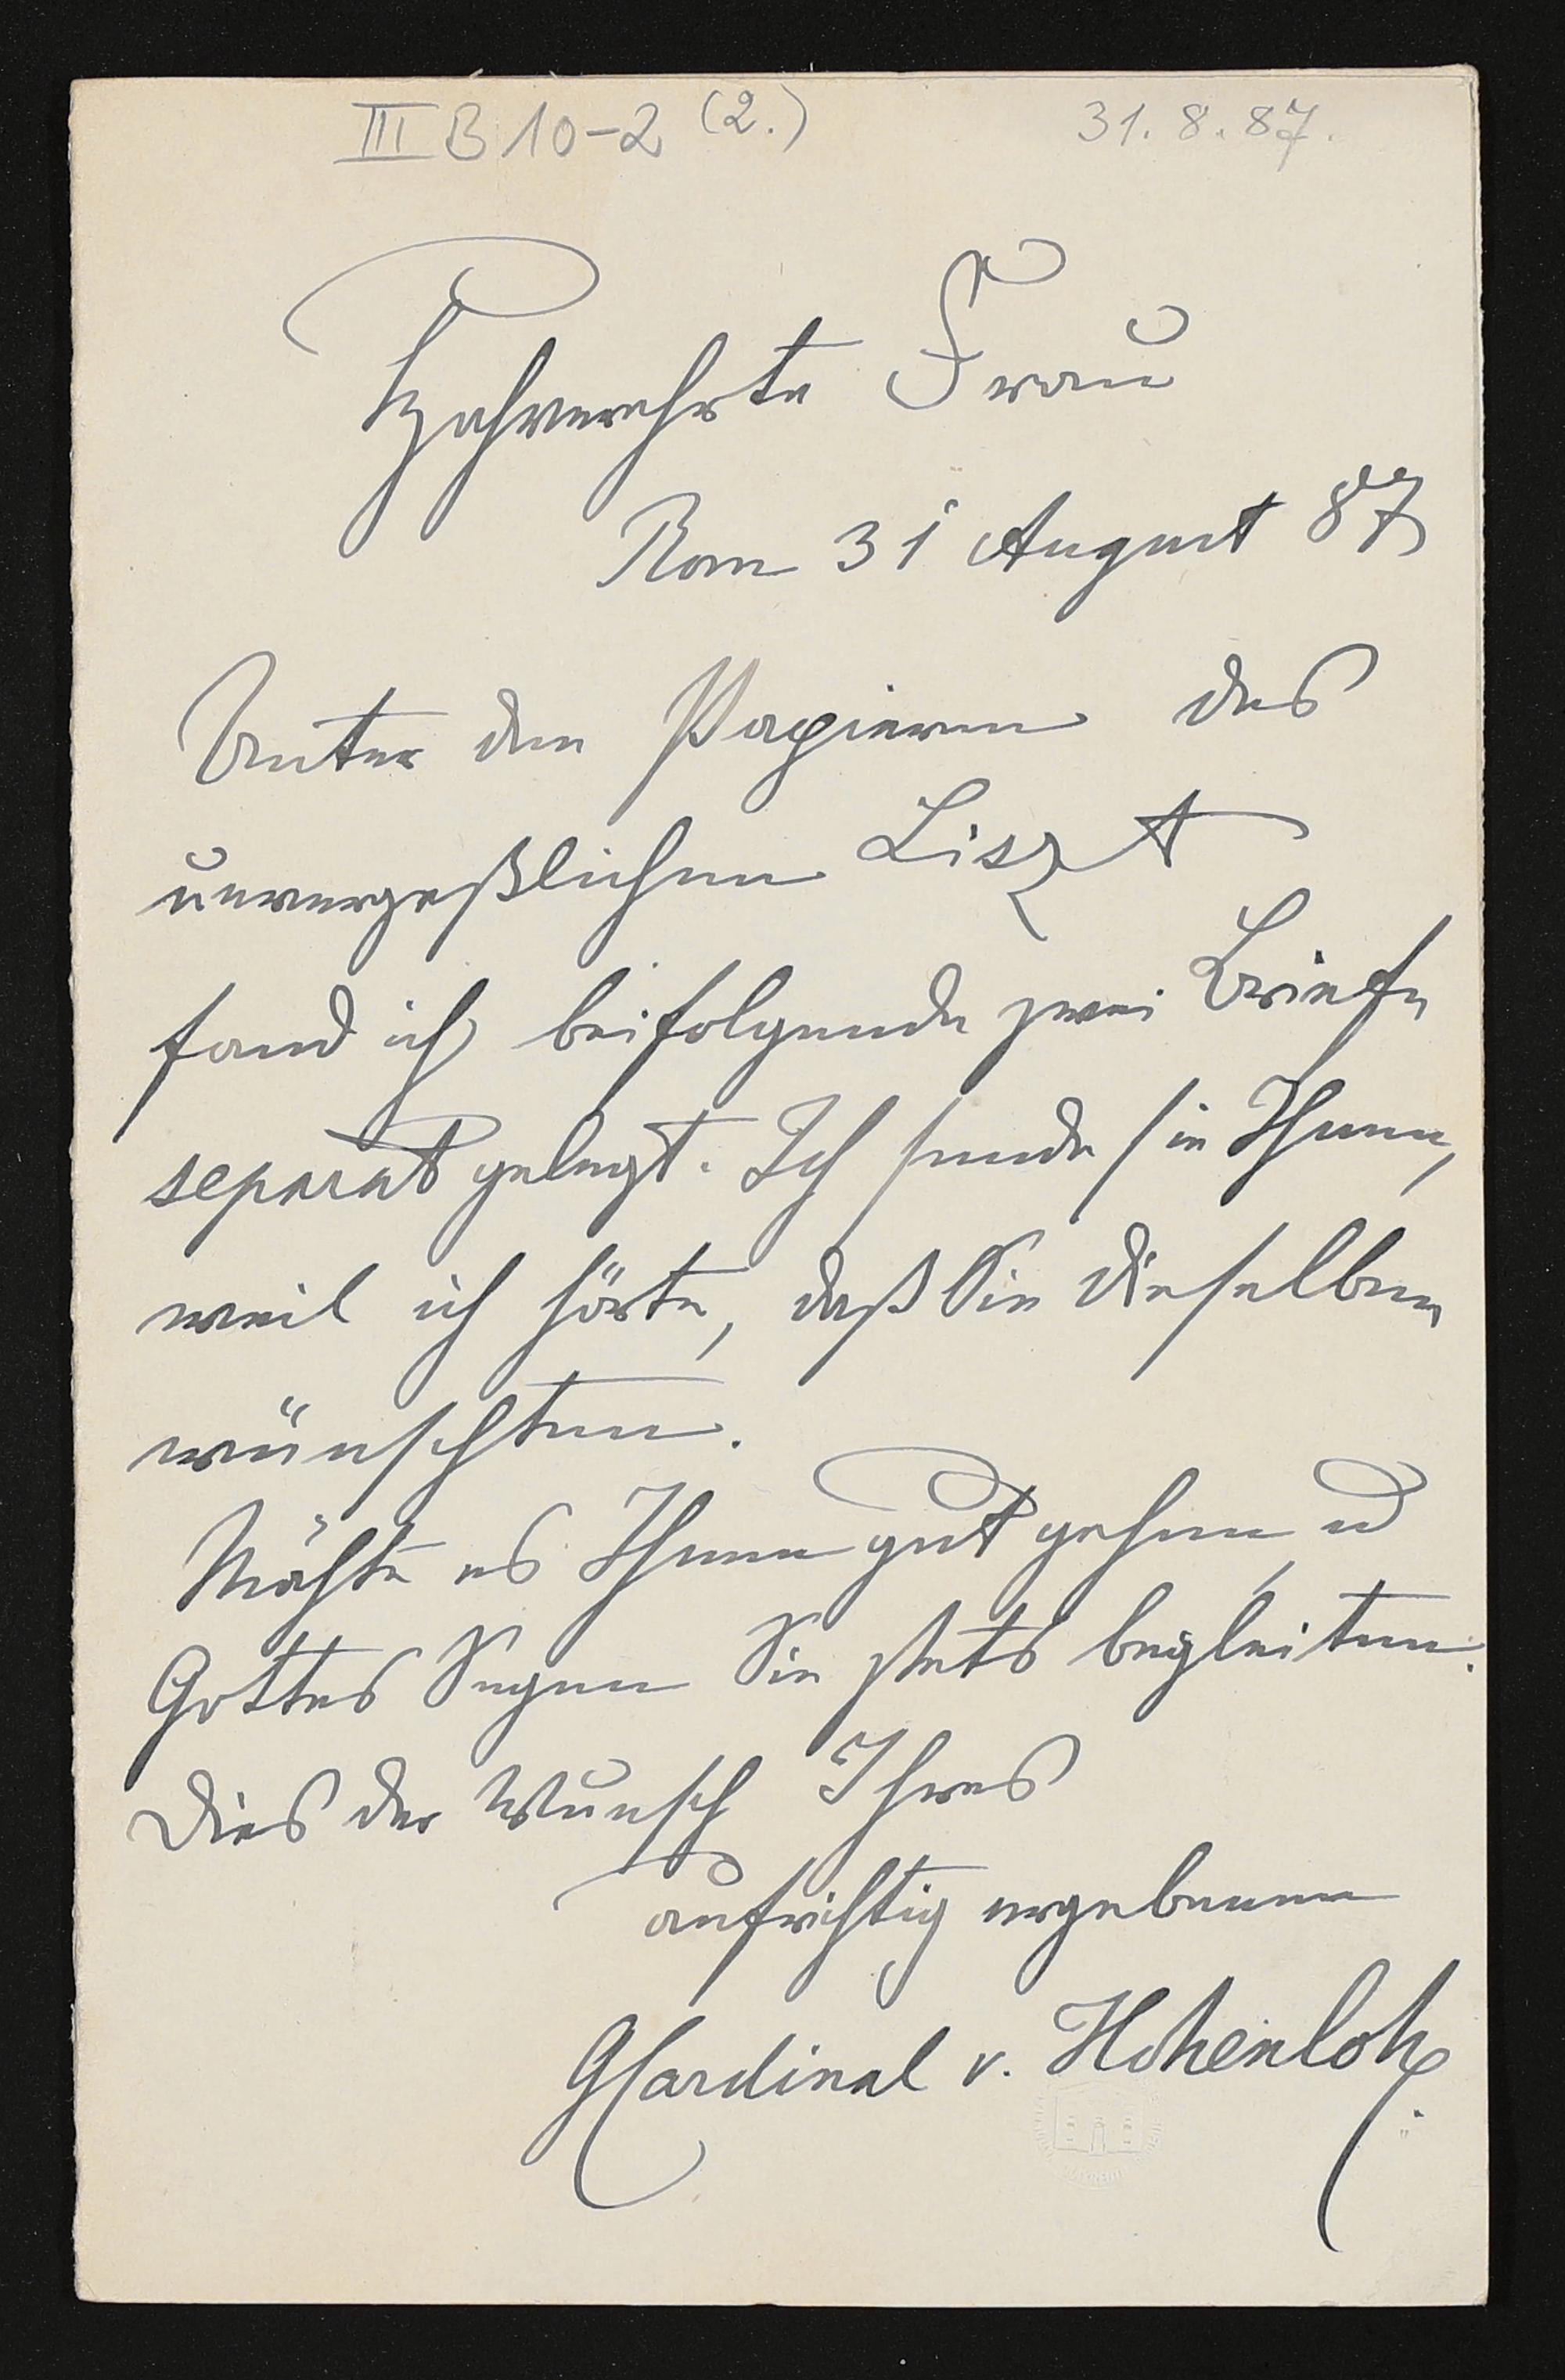 III B 10-2 (2.) 31.8.87.
Hochverehrte Frau
Rom 31 August 87
Unter den Papieren des
unvergeßlichen Liszt
fand ich beifolgende zwei Briefe
separat gelegt. Ich sende sie Ihnen,
weil ich hörte, daß Sie dieselben
wünschten.
Möchte es Ihnen gut gehen, u
Gottes Segen Sie stets begleiten.
Dies der Wunsch Ihres
aufrichtig ergebenen
GCardinal v. Hohenlohe